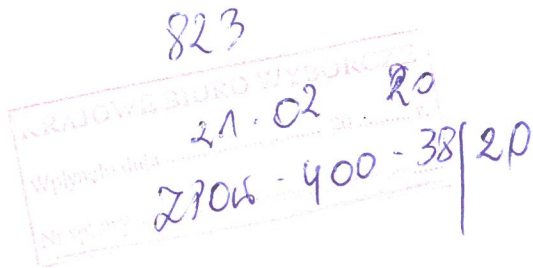 823
KRAJOWE BIURO WYBORCZE
21.02 20
Wpłynęło dnia 20 r.
ZPOW-400-38/20